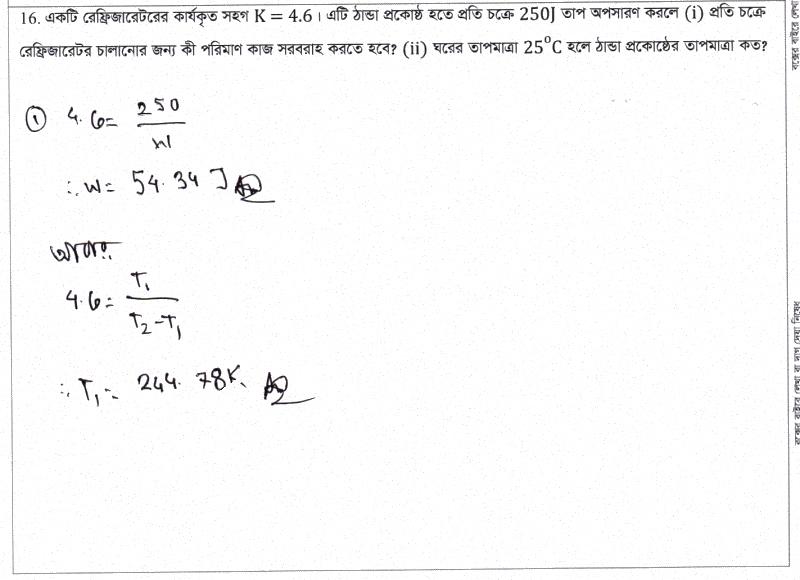 16. একটি রেফ্রিজারেটরের কার্যকৃত সহগ K = 4.6। এটি ঠান্ডা প্রকোষ্ঠ হতে প্রতি চক্রে 250J তাপ অপসারণ করলে (i) প্রতি চক্রে
রেফ্রিজারেটর চালানোর জন্য কী পরিমাণ কাজ সরবরাহ করতে হবে? (ii) ঘরের তাপমাত্রা 25°C হলে ঠান্ডা প্রকোষ্ঠের তাপমাত্রা কত?
① 4.6 = 250/W
∴ W = 54.34 J
আবার,
4.6 = T₁/(T₂-T₁)
∴ T₁ = 244.78K.